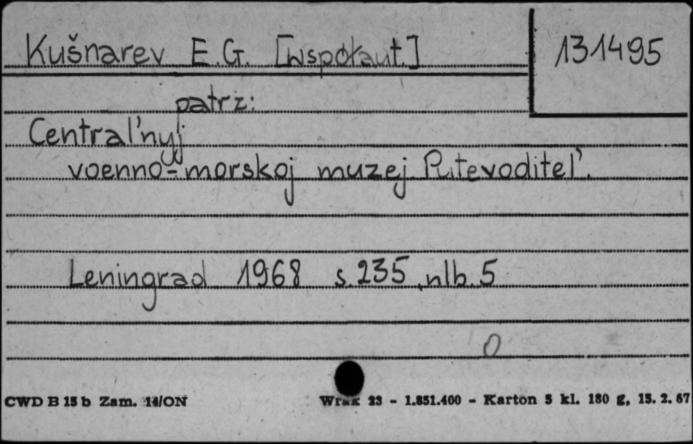 Kušnarev E.G. [współaut.]
131495
patrz:
Central'nyj
voenno-morskoj muzej. Putevoditel'.
Leningrad 1968 s. 235, nlb. 5
0
CWD B 15 b Zam. 14/ON
Wrak 23 - 1.851.400 - Karton 5 kl. 180 g, 15. 2. 67